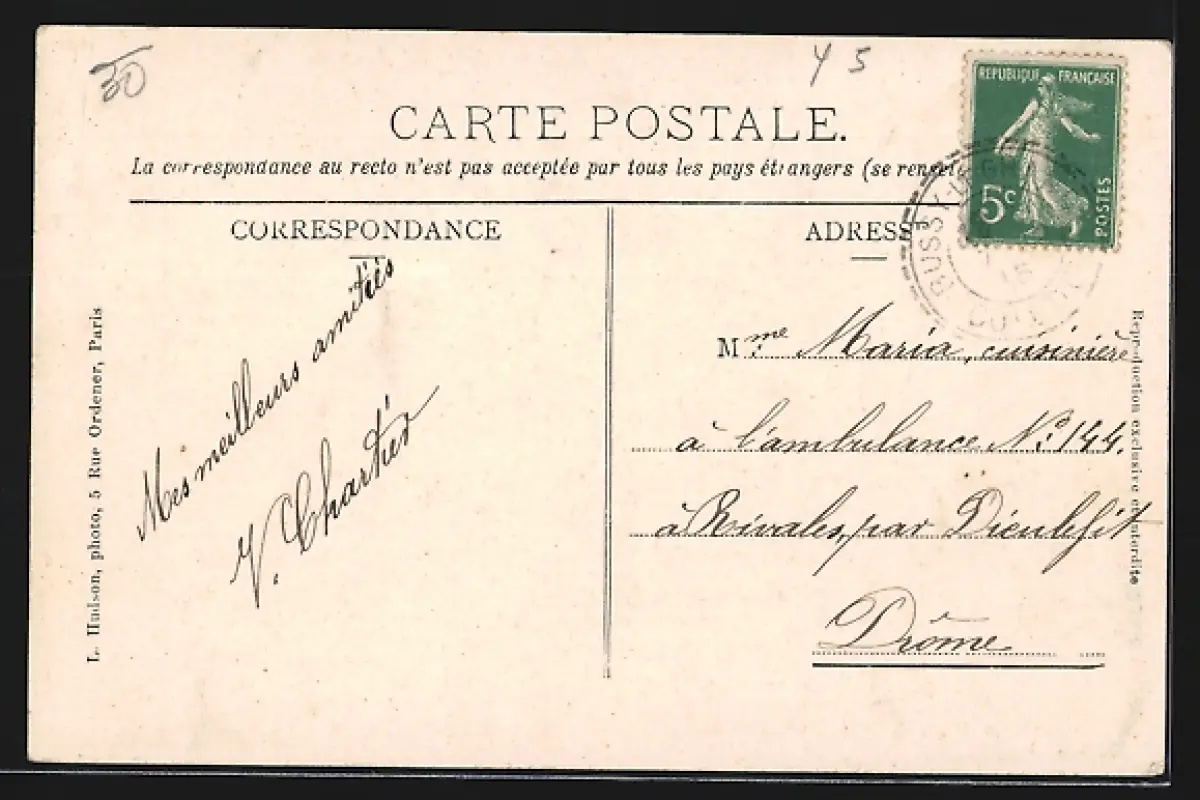 30
Y 5
REPUBLIQUE FRANÇAISE
5c
POSTES
CARTE POSTALE.
La correspondance au recto n'est pas acceptée par tous les pays étrangers (se rensei
CORRESPONDANCE
ADRESS
RUSSY
Mes meilleurs amitiés
V. Chartier
Mme Maria, cuisinière
à l'ambulance No 144.
à Rivales, par Dieulefit
Drôme
L. Hudson, photo, 5 Rue Ordener, Paris
Reproduction exclusive et interdite